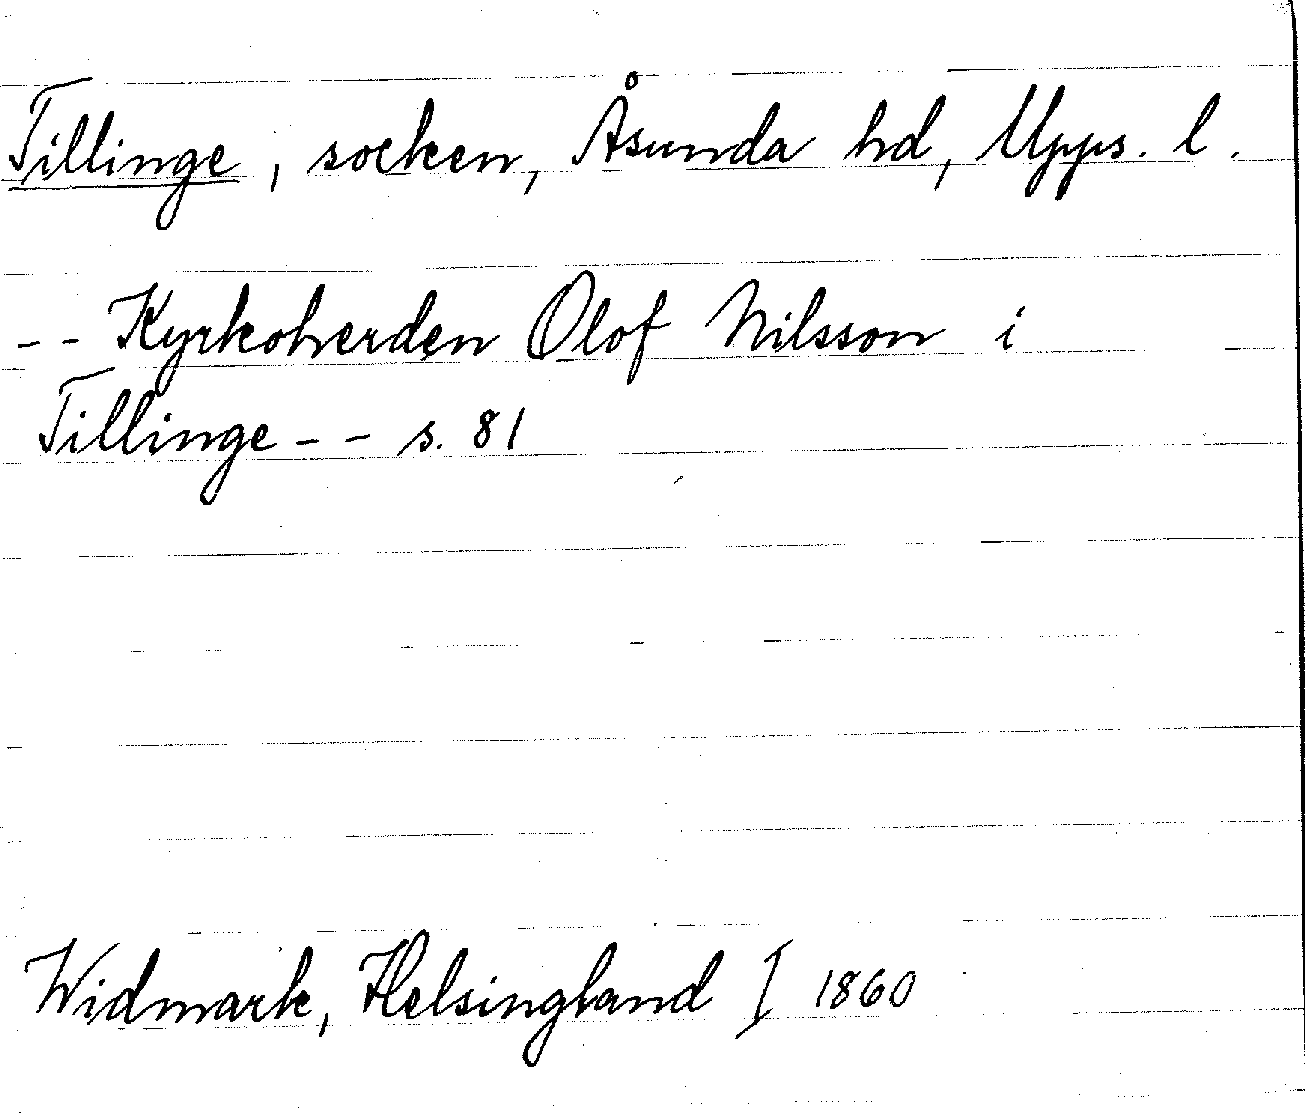 Tillinge, socken, Åsunda hd, Upps. l.
-- Kyrkoherden Olof Nilsson i
Tillinge -- s. 81
Widmark, Helsingland I 1860